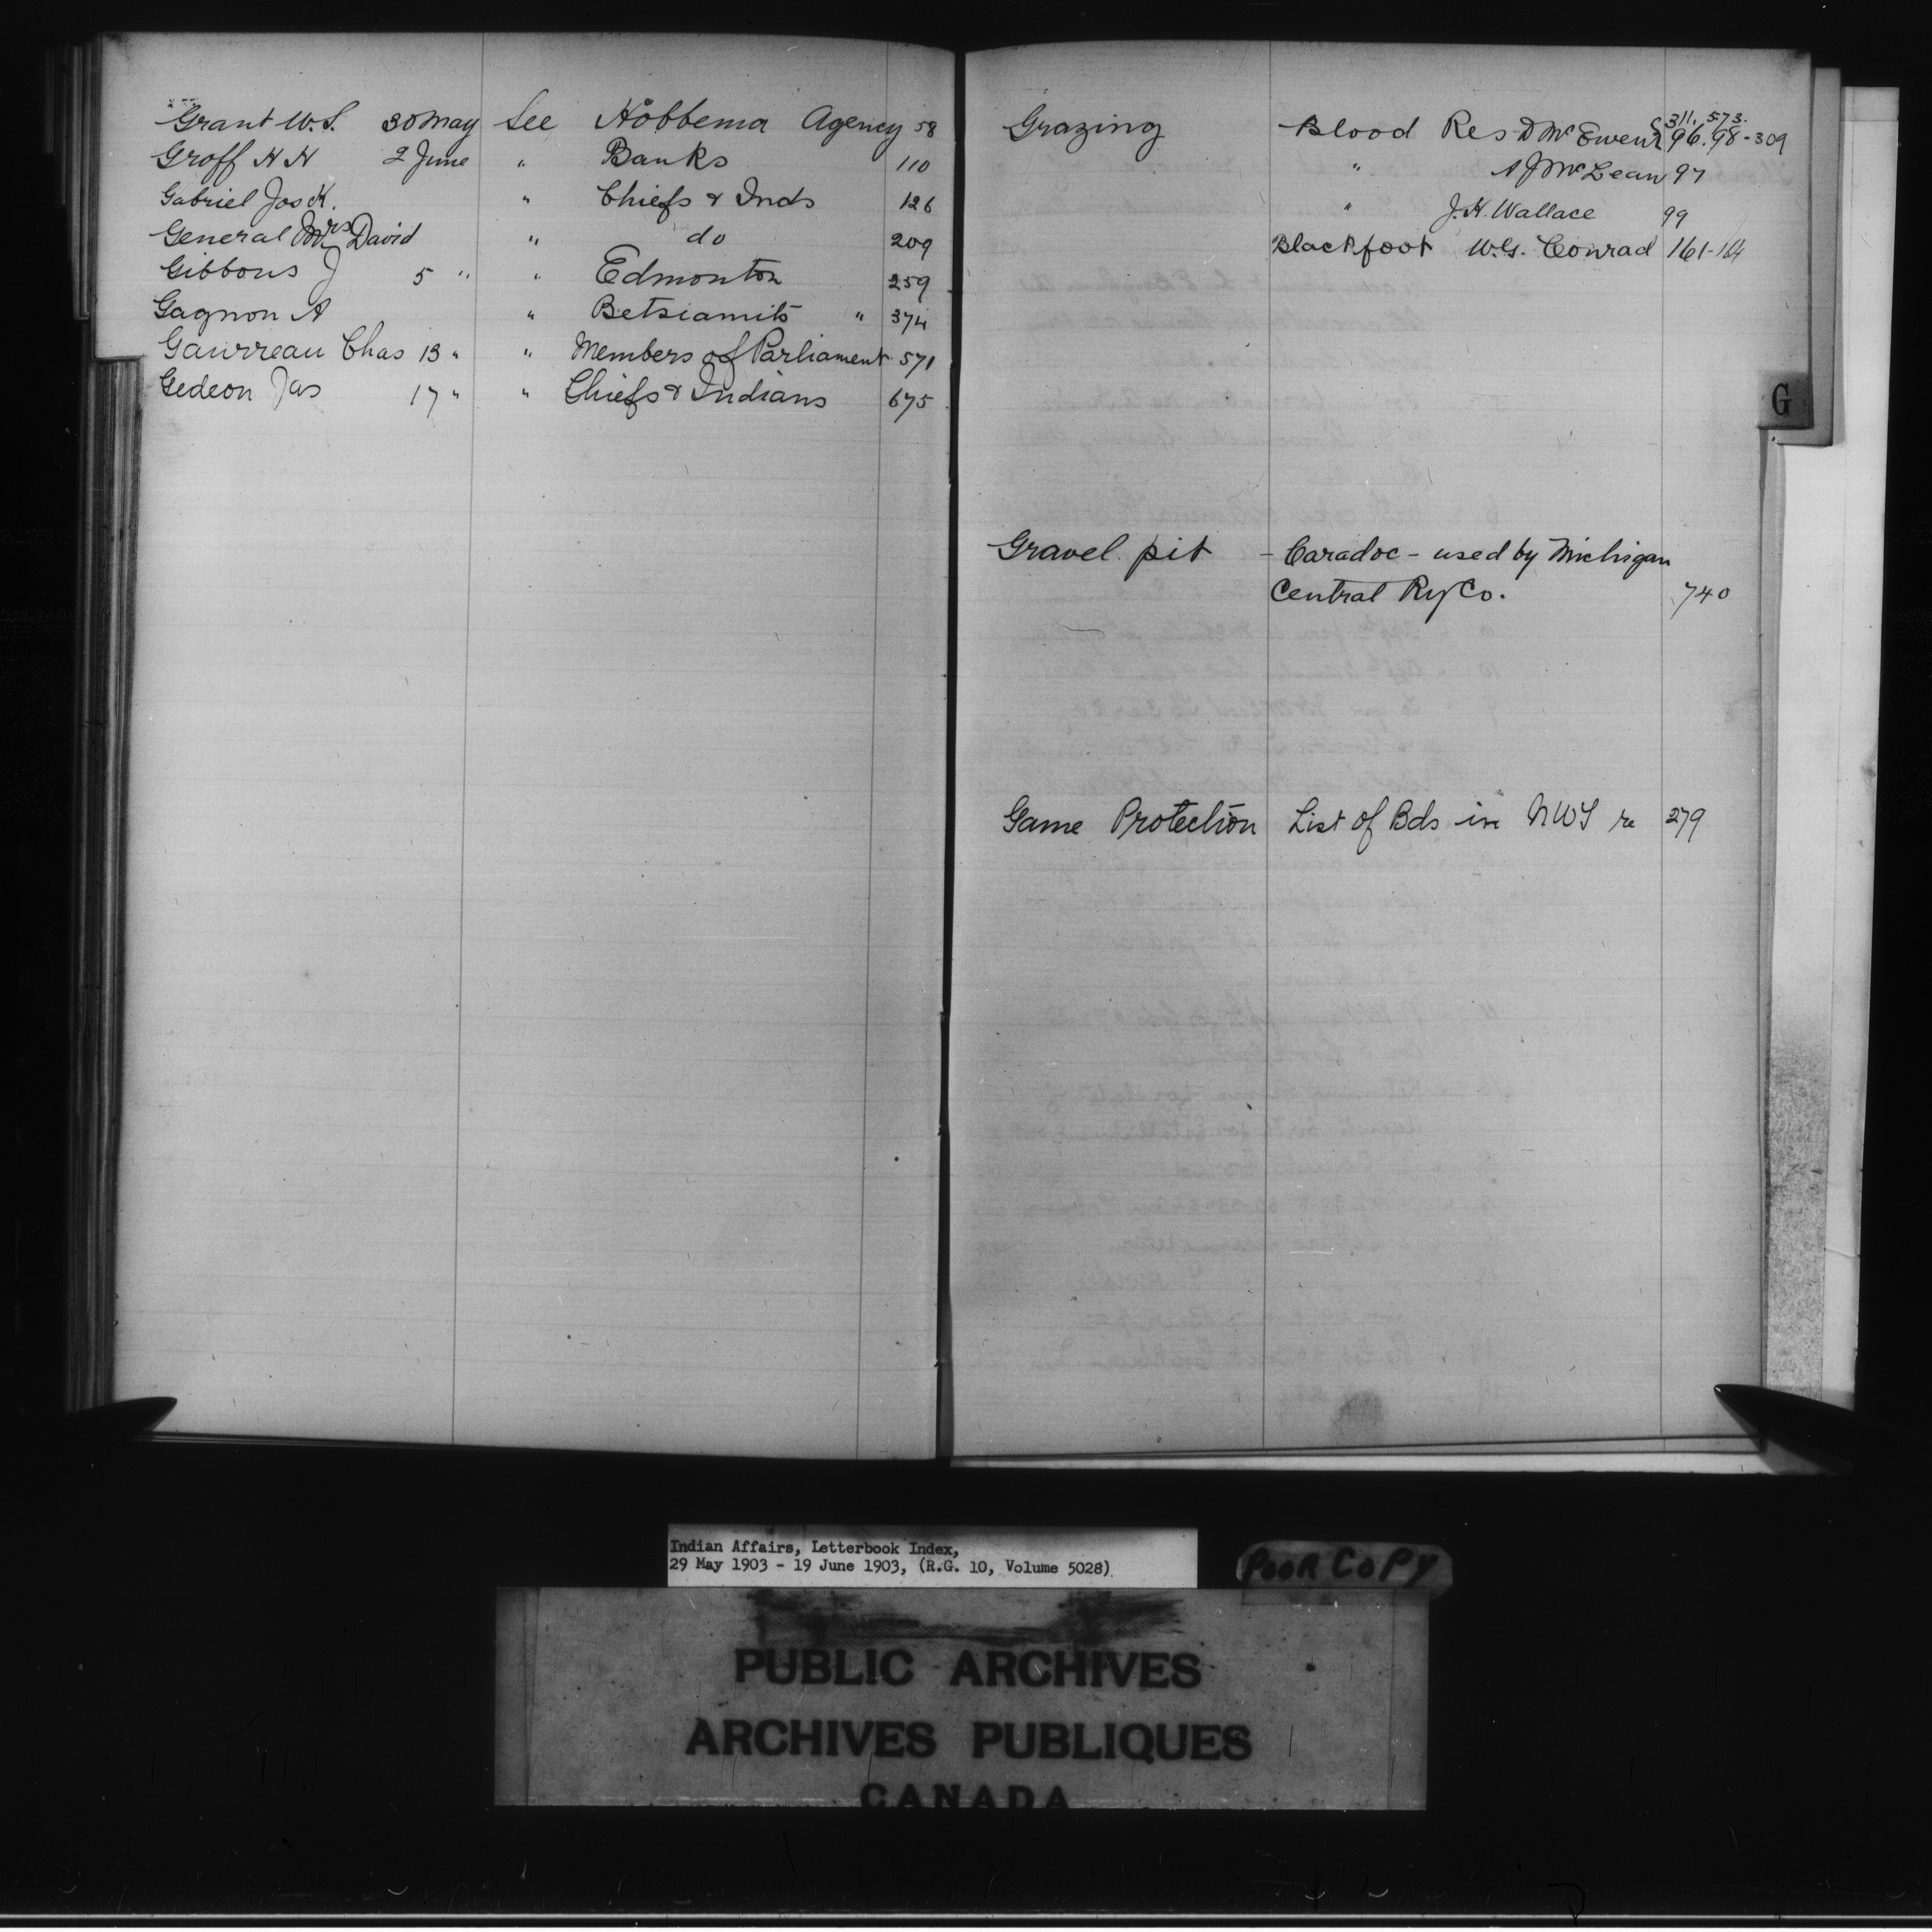 Grant W.S. 30 May See Hobbema Agency 58
Groff H H 2 June " Banks 110
Gabriel Jos K. " Chiefs & Inds 126
General Mrs David " do 209
Gibbons J 5 " " Edmonton 259
Gagnon A " Betsiamits " 374
Gauvreau Chas 13 " " Members of Parliament 571
Gedeon Jas 17 " " Chiefs & Indians 675
311, 573.
Grazing Blood Res D McEwen 96. 98-309
" A J McLean 97
" J.H. Wallace 99
Blackfoot W.G. Conrad 161-164
G
Gravel pit - Caradoc - used by Michigan
Central Ry Co. 740
Game Protection List of Bds in NWT re 279
Indian Affairs, Letterbook Index,
29 May 1903 - 19 June 1903, (R.G. 10, Volume 5028)
POOR COPY
PUBLIC ARCHIVES
ARCHIVES PUBLIQUES
CANADA